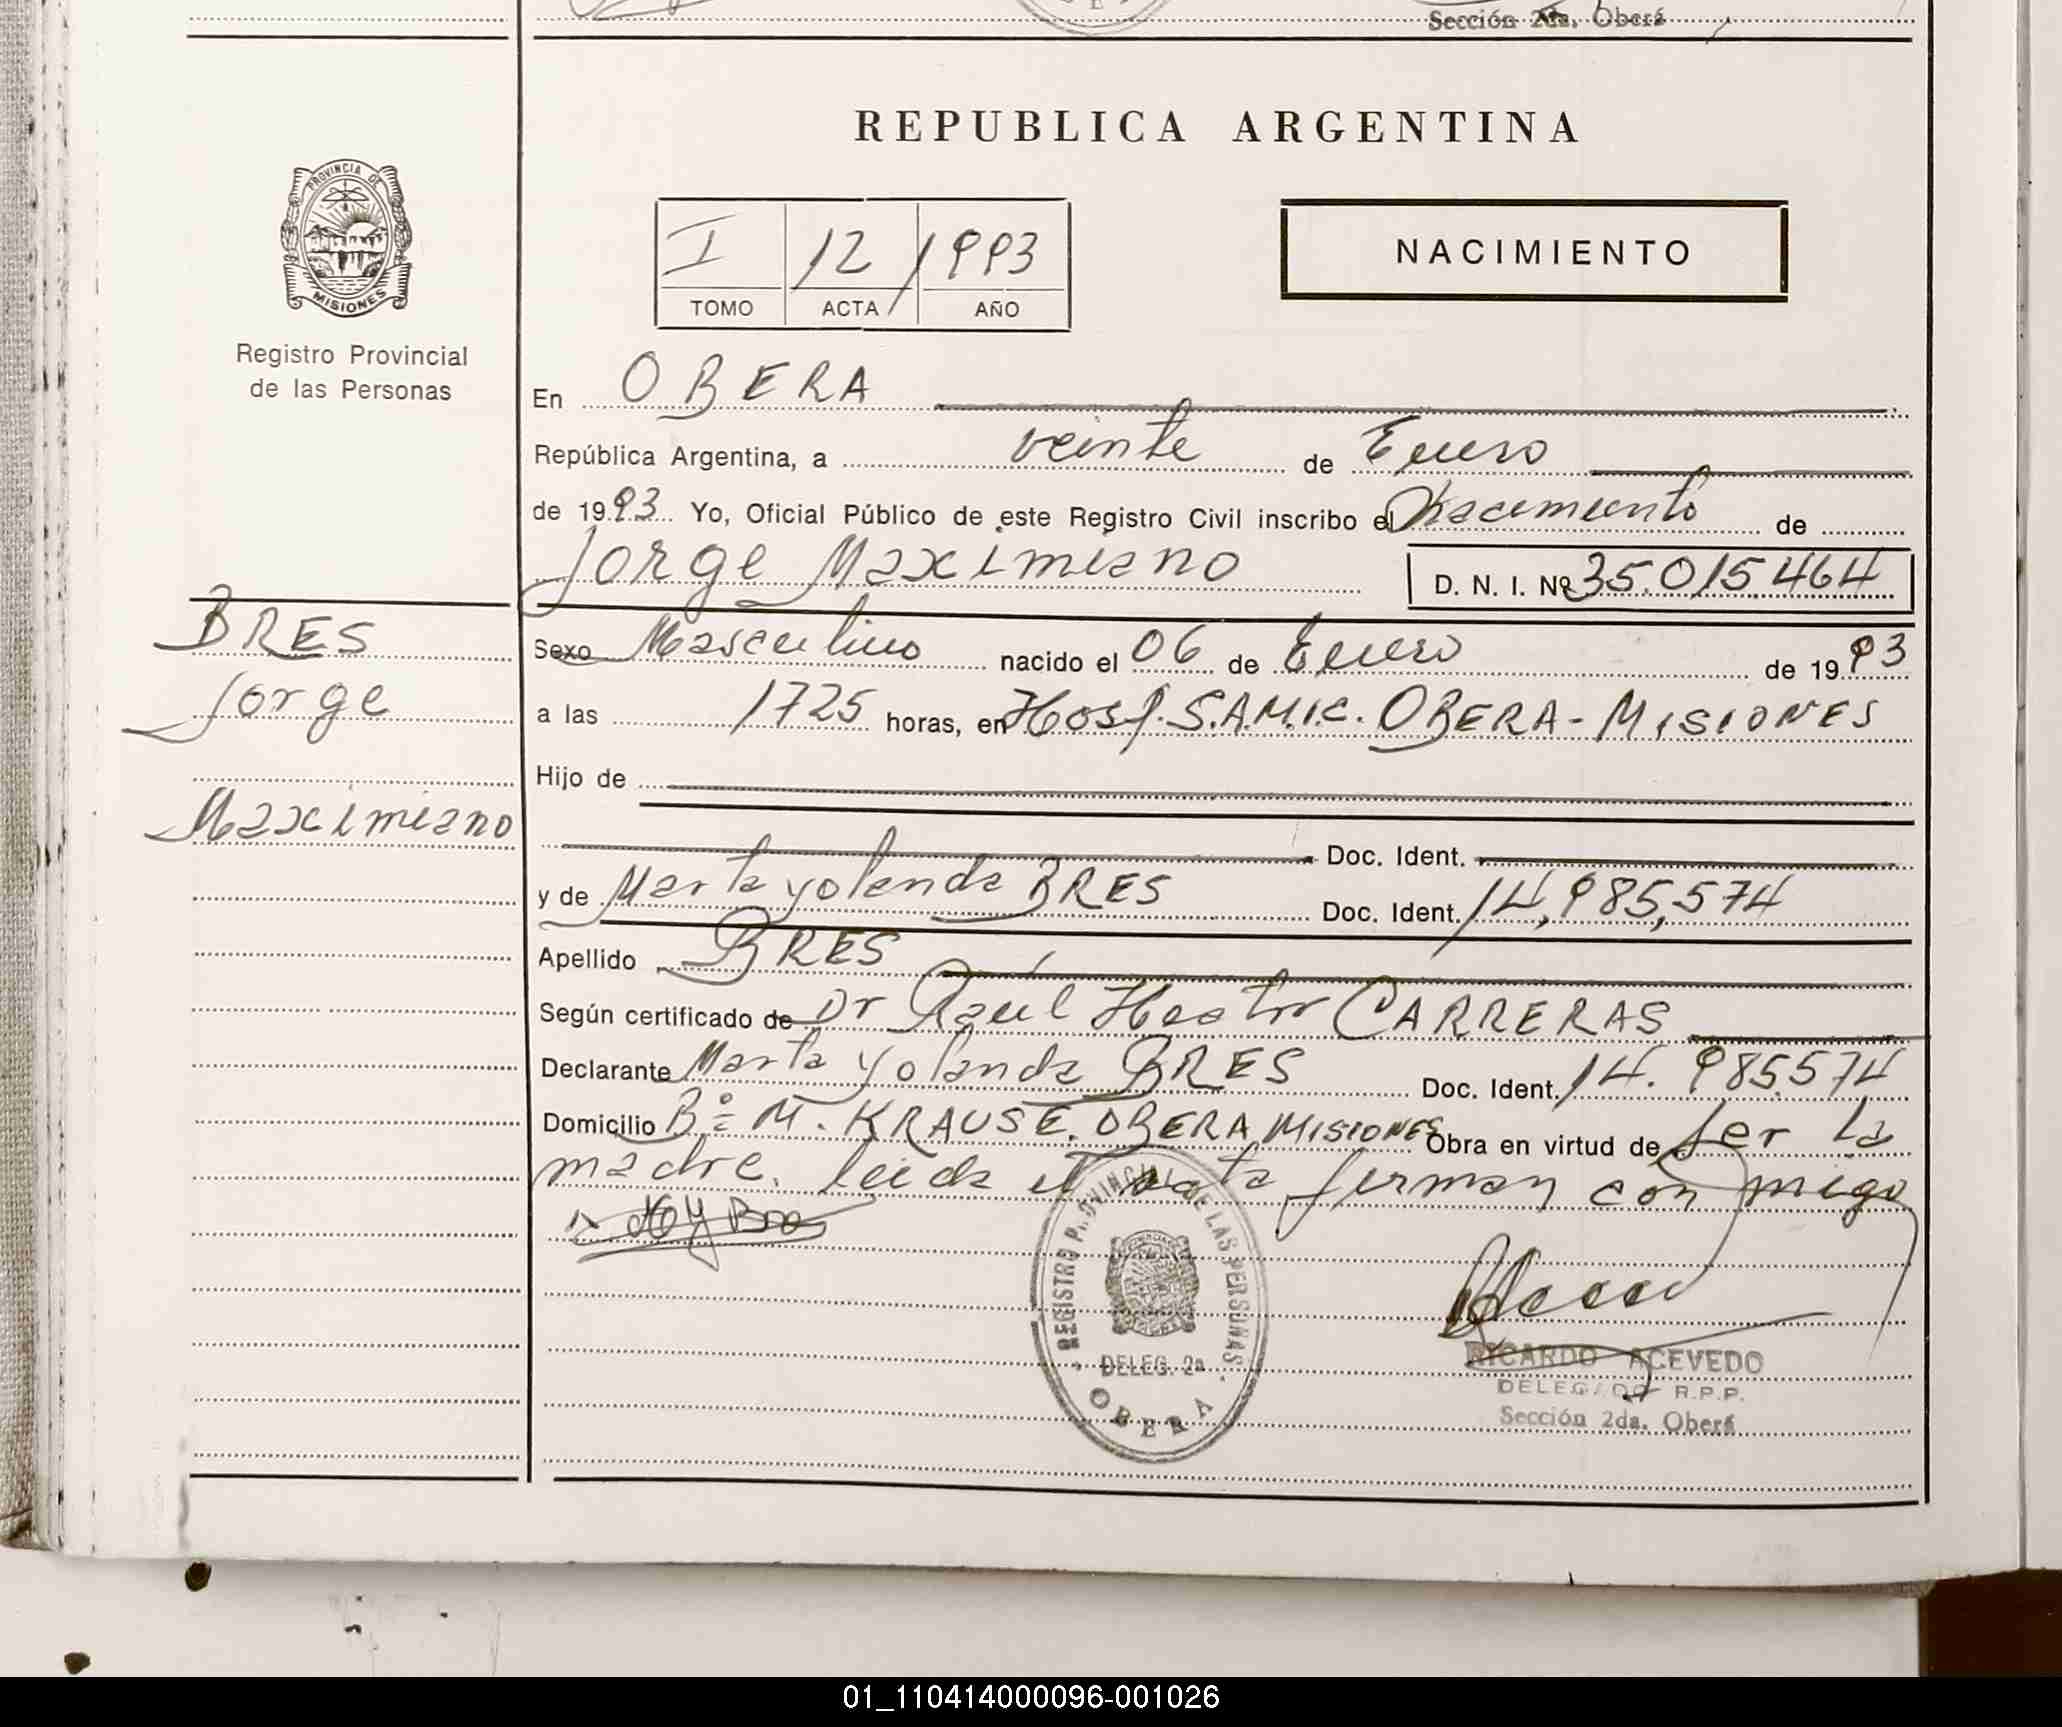 Sección 2da. Oberá
REPUBLICA ARGENTINA
PROVINCIA DE
MISIONES
Registro Provincial
de las Personas
I 12 / 1993
TOMO ACTA AÑO
NACIMIENTO
En OBERA
República Argentina, a veinte de Enero
de 1993 Yo, Oficial Público de este Registro Civil inscribo el Nacimiento de
Jorge Maximiano D. N. I. Nº 35.015.464
BRES
Jorge
Maximiano
Sexo Masculino nacido el 06 de Enero de 1993
a las 1725 horas, en Hosp. S.A.M.I.C. OBERA - MISIONES
Hijo de
Doc. Ident.
y de Marta yolanda BRES Doc. Ident. 14,985,574
Apellido BRES
Según certificado de Dr Raúl Hector CARRERAS
Declarante Marta Yolanda BRES Doc. Ident. 14.985574
Domicilio Bº M. KRAUSE. OBERA, MISIONES Obra en virtud de ser la
madre. leida el acta firman con migo
REGISTRO PROVINCIAL DE LAS PERSONAS
DELEG. 2a
OBERA
RICARDO ACEVEDO
DELEGADO R.P.P.
Sección 2da. Oberá
01_110414000096-001026